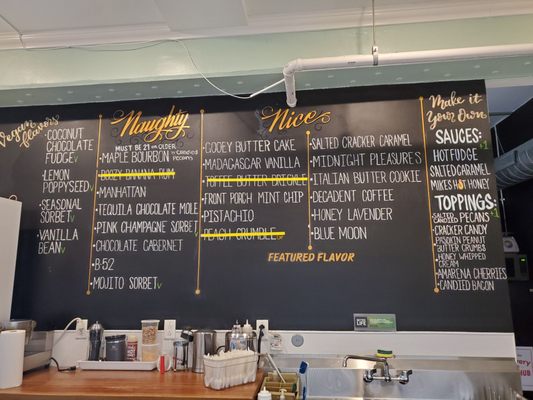 Vegan Flavors
COCONUT
CHOCOLATE
FUDGE V
LEMON
POPPYSEED V
SEASONAL
SORBET V
VANILLA
BEAN V
Naughty
MUST BE 21 OR OLDER
MAPLE BOURBON w/ CANDIED PECANS
BOOZY BANANA RUM
MANHATTAN
TEQUILA CHOCOLATE MOLE
PINK CHAMPAGNE SORBET
CHOCOLATE CABERNET
B-52
MOJITO SORBET V
Nice
GOOEY BUTTER CAKE
MADAGASCAR VANILLA
TOFFEE BUTTER BRICKLE
FRONT PORCH MINT CHIP
PISTACHIO
PEACH CRUMBLE
SALTED CRACKER CARAMEL
MIDNIGHT PLEASURES
ITALIAN BUTTER COOKIE
DECADENT COFFEE
HONEY LAVENDER
BLUE MOON
FEATURED FLAVOR
Make it
Your Own
SAUCES:
HOT FUDGE
SALTED CARAMEL
MIKES HOT HONEY
TOPPINGS:
SALTED
CANDIED PECANS
CRACKER CANDY
PEANUT
BUTTER CRUMBS
HONEY WHIPPED
CREAM
AMARENA CHERRIES
CANDIED BACON
LIFE